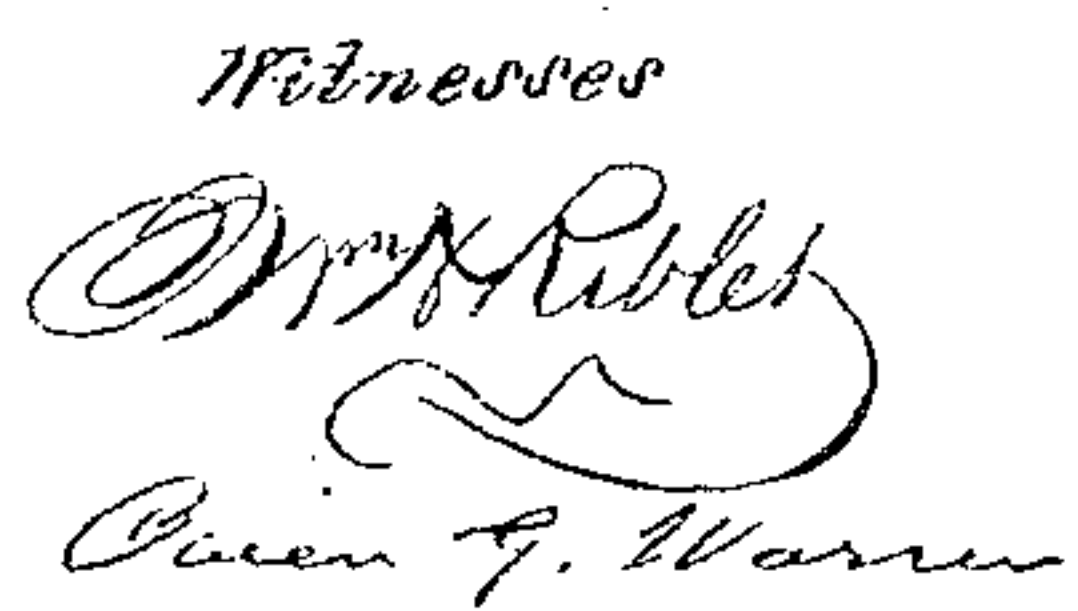 Witnesses
Wm H Riblet
Owen G. Warren